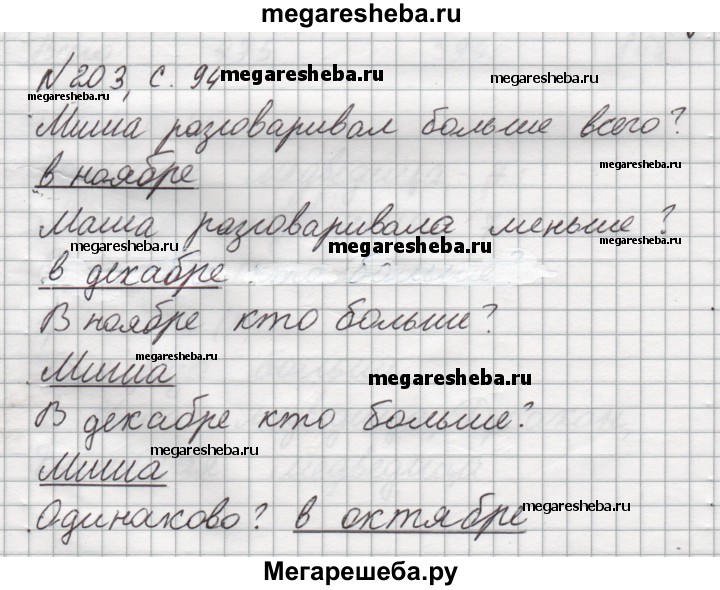 megaresheba.ru
№203, с. 94 megaresheba.ru megaresheba.ru
megaresheba.ru
Миша разговаривал больше всего?
в ноябре megaresheba.ru
Маша разговаривала меньше?
megaresheba.ru megaresheba.ru megaresheba.ru
в декабре
В ноябре кто больше?
megaresheba.ru
Миша megaresheba.ru
В декабре кто больше?
megaresheba.ru
Миша
Одинаково? в октябре megaresheba.ru
Мегарешеба.ру